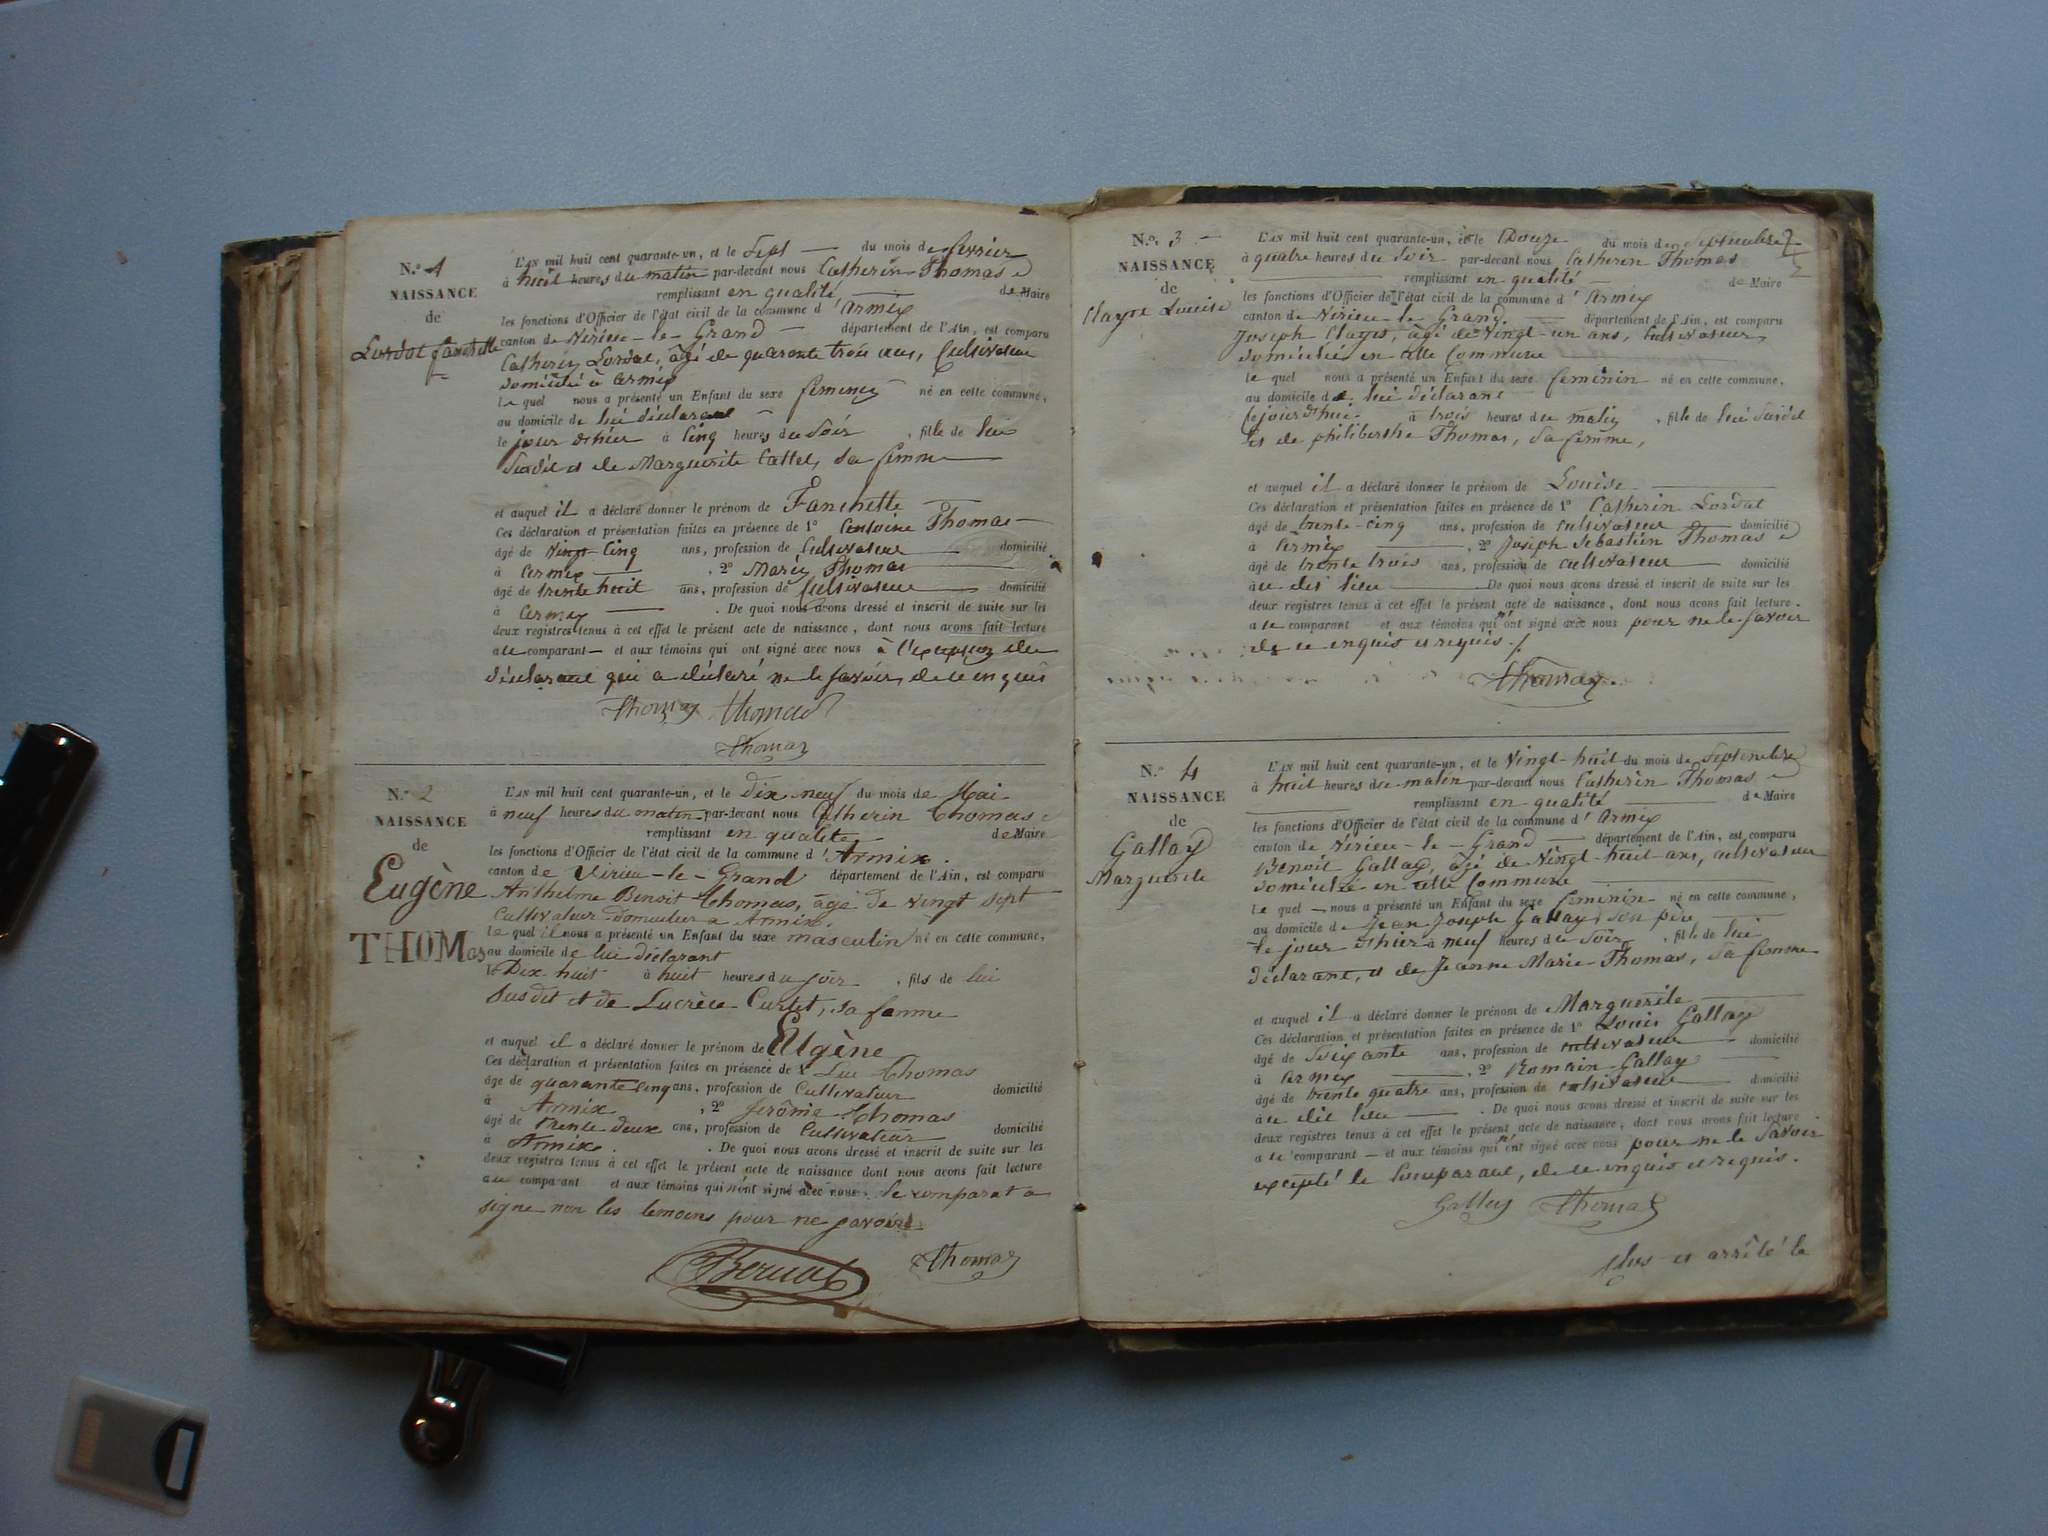 N.º 1
NAISSANCE
de
Lordat fanchette
L'AN mil huit cent quarante-un, et le Sept du mois de fevrier
à huit heures du matin par-devant nous Catherin Thomas
remplissant en qualité de Maire
les fonctions d'Officier de l'état civil de la commune d'armix
canton de Virieu-le-Grand département de l'Ain, est comparu
Catherin Lordat, âgé de quarante trois ans, Cultivateur
domicilié à armix
le quel nous a présenté un Enfant du sexe feminin né en cette commune,
au domicile de lui déclarant
le jour d'hier à Cinq heures du Soir, fille de lui
Susdit et de Marguerite Callet, sa femme
et auquel il a déclaré donner le prénom de Fanchette
Ces déclaration et présentation faites en présence de 1º antoine Thomas
âgé de vingt Cinq ans, profession de Cultivateur domicilié
à armix, 2º Marin Thomas
âgé de trente huit ans, profession de Cultivateur domicilié
à armix. De quoi nous avons dressé et inscrit de suite sur les
deux registres tenus à cet effet le présent acte de naissance, dont nous avons fait lecture
au comparant et aux témoins qui ont signé avec nous à l'exception du
déclarant qui a déclaré ne le savoir, de ce enquis
Thomas Thomas
Thomas
N.º 2
NAISSANCE
de
Eugène
THOMas
L'AN mil huit cent quarante-un, et le dix neuf du mois de Mai
à neuf heures du matin par-devant nous Catherin Thomas
remplissant en qualité de Maire
les fonctions d'Officier de l'état civil de la commune d'Armix.
canton de Virieu-le-Grand département de l'Ain, est comparu
Anthelme Benoit Thomas, âgé de vingt sept
Cultivateur domicilier a Armix.
le quel il nous a présenté un Enfant du sexe masculin né en cette commune,
au domicile de lui déclarant
le Dix huit à huit heures du soir, fils de lui
Susdit et de Lucrèce Curtet, sa famme
et auquel il a déclaré donner le prénom de Eugène
Ces déclaration et présentation faites en présence de 1º Luc Thomas
âge de quarante cinq ans, profession de Cultivateur domicilié
à Armix, 2º Jerôme Thomas
âgé de trente deux ans, profession de Cultivateur domicilié
à Armix. De quoi nous avons dressé et inscrit de suite sur les
deux registres tenus à cet effet le présent acte de naissance dont nous avons fait lecture
au comparant et aux témoins qui n'ont signé avec nous. le comparat a
signe non les temoins pour ne savoir
Thomas
N.º 3
NAISSANCE
de
Clayet Louise
L'AN mil huit cent quarante-un, et le Douze du mois de Septembre
à quatre heures du Soir par-devant nous Catherin Thomas
remplissant en qualité de Maire
les fonctions d'Officier de l'état civil de la commune d'armix
canton de Virieu-le-Grand. département de l'Ain, est comparu
Joseph Clayet, âgé de Vingt-un ans, Cultivateur,
domicilié en cette Commune
le quel nous a présenté un Enfant du sexe feminin né en cette commune,
au domicile de lui déclarant
Cejourd'hui à trois heures du matin, fille de lui Susdit
et de philiberthe Thomas, Sa femme,
et auquel il a déclaré donner le prénom de Louise
Ces déclaration et présentation faites en présence de 1º Catherin Lordat
âgé de trente-cinq ans, profession de cultivateur domicilié
à armix, 2º Joseph Sébastien Thomas
âgé de trente trois ans, profession de cultivateur domicilié
au dit lieu De quoi nous avons dressé et inscrit de suite sur les
deux registres tenus à cet effet le présent acte de naissance, dont nous avons fait lecture
au comparant et aux témoins qui n'ont signé avec nous pour ne le savoir
de ce enquis et requis./.
Thomas.
N.º 4
NAISSANCE
de
Gallay
Marguerite
L'AN mil huit cent quarante-un, et le Vingt-huit du mois de Septembre
à huit heures du matin par-devant nous Catherin Thomas
remplissant en qualité de Maire
les fonctions d'Officier de l'état civil de la commune d'armix
canton de Virieu-le-Grand département de l'Ain, est comparu
Benoit Gallay, âgé de Vingt-huit ans, cultivateur
domicilié en cette Commune
le quel nous a présenté un Enfant du sexe feminin né en cette commune,
au domicile de Jean Joseph Gallay, son père
le jour d'hier à neuf heures du Soir, fille de lui
déclarant, et de Jeanne Marie Thomas, Sa femme
et auquel il a déclaré donner le prénom de Marguerite
Ces déclaration et présentation faites en présence de 1º Louis Gallay
âgé de Soixante ans, profession de cultivateur domicilié
à armix, 2º Romain Gallay
âgé de trente quatre ans, profession de cultivateur domicilié
au dit lieu. De quoi nous avons dressé et inscrit de suite sur les
deux registres tenus à cet effet le présent acte de naissance, dont nous avons fait lecture
au comparant et aux témoins qui n'ont signé avec nous pour ne le Savoir
excepté le Comparant, de ce enquis et requis.
Gallay Thomas
Clos et arrêté le